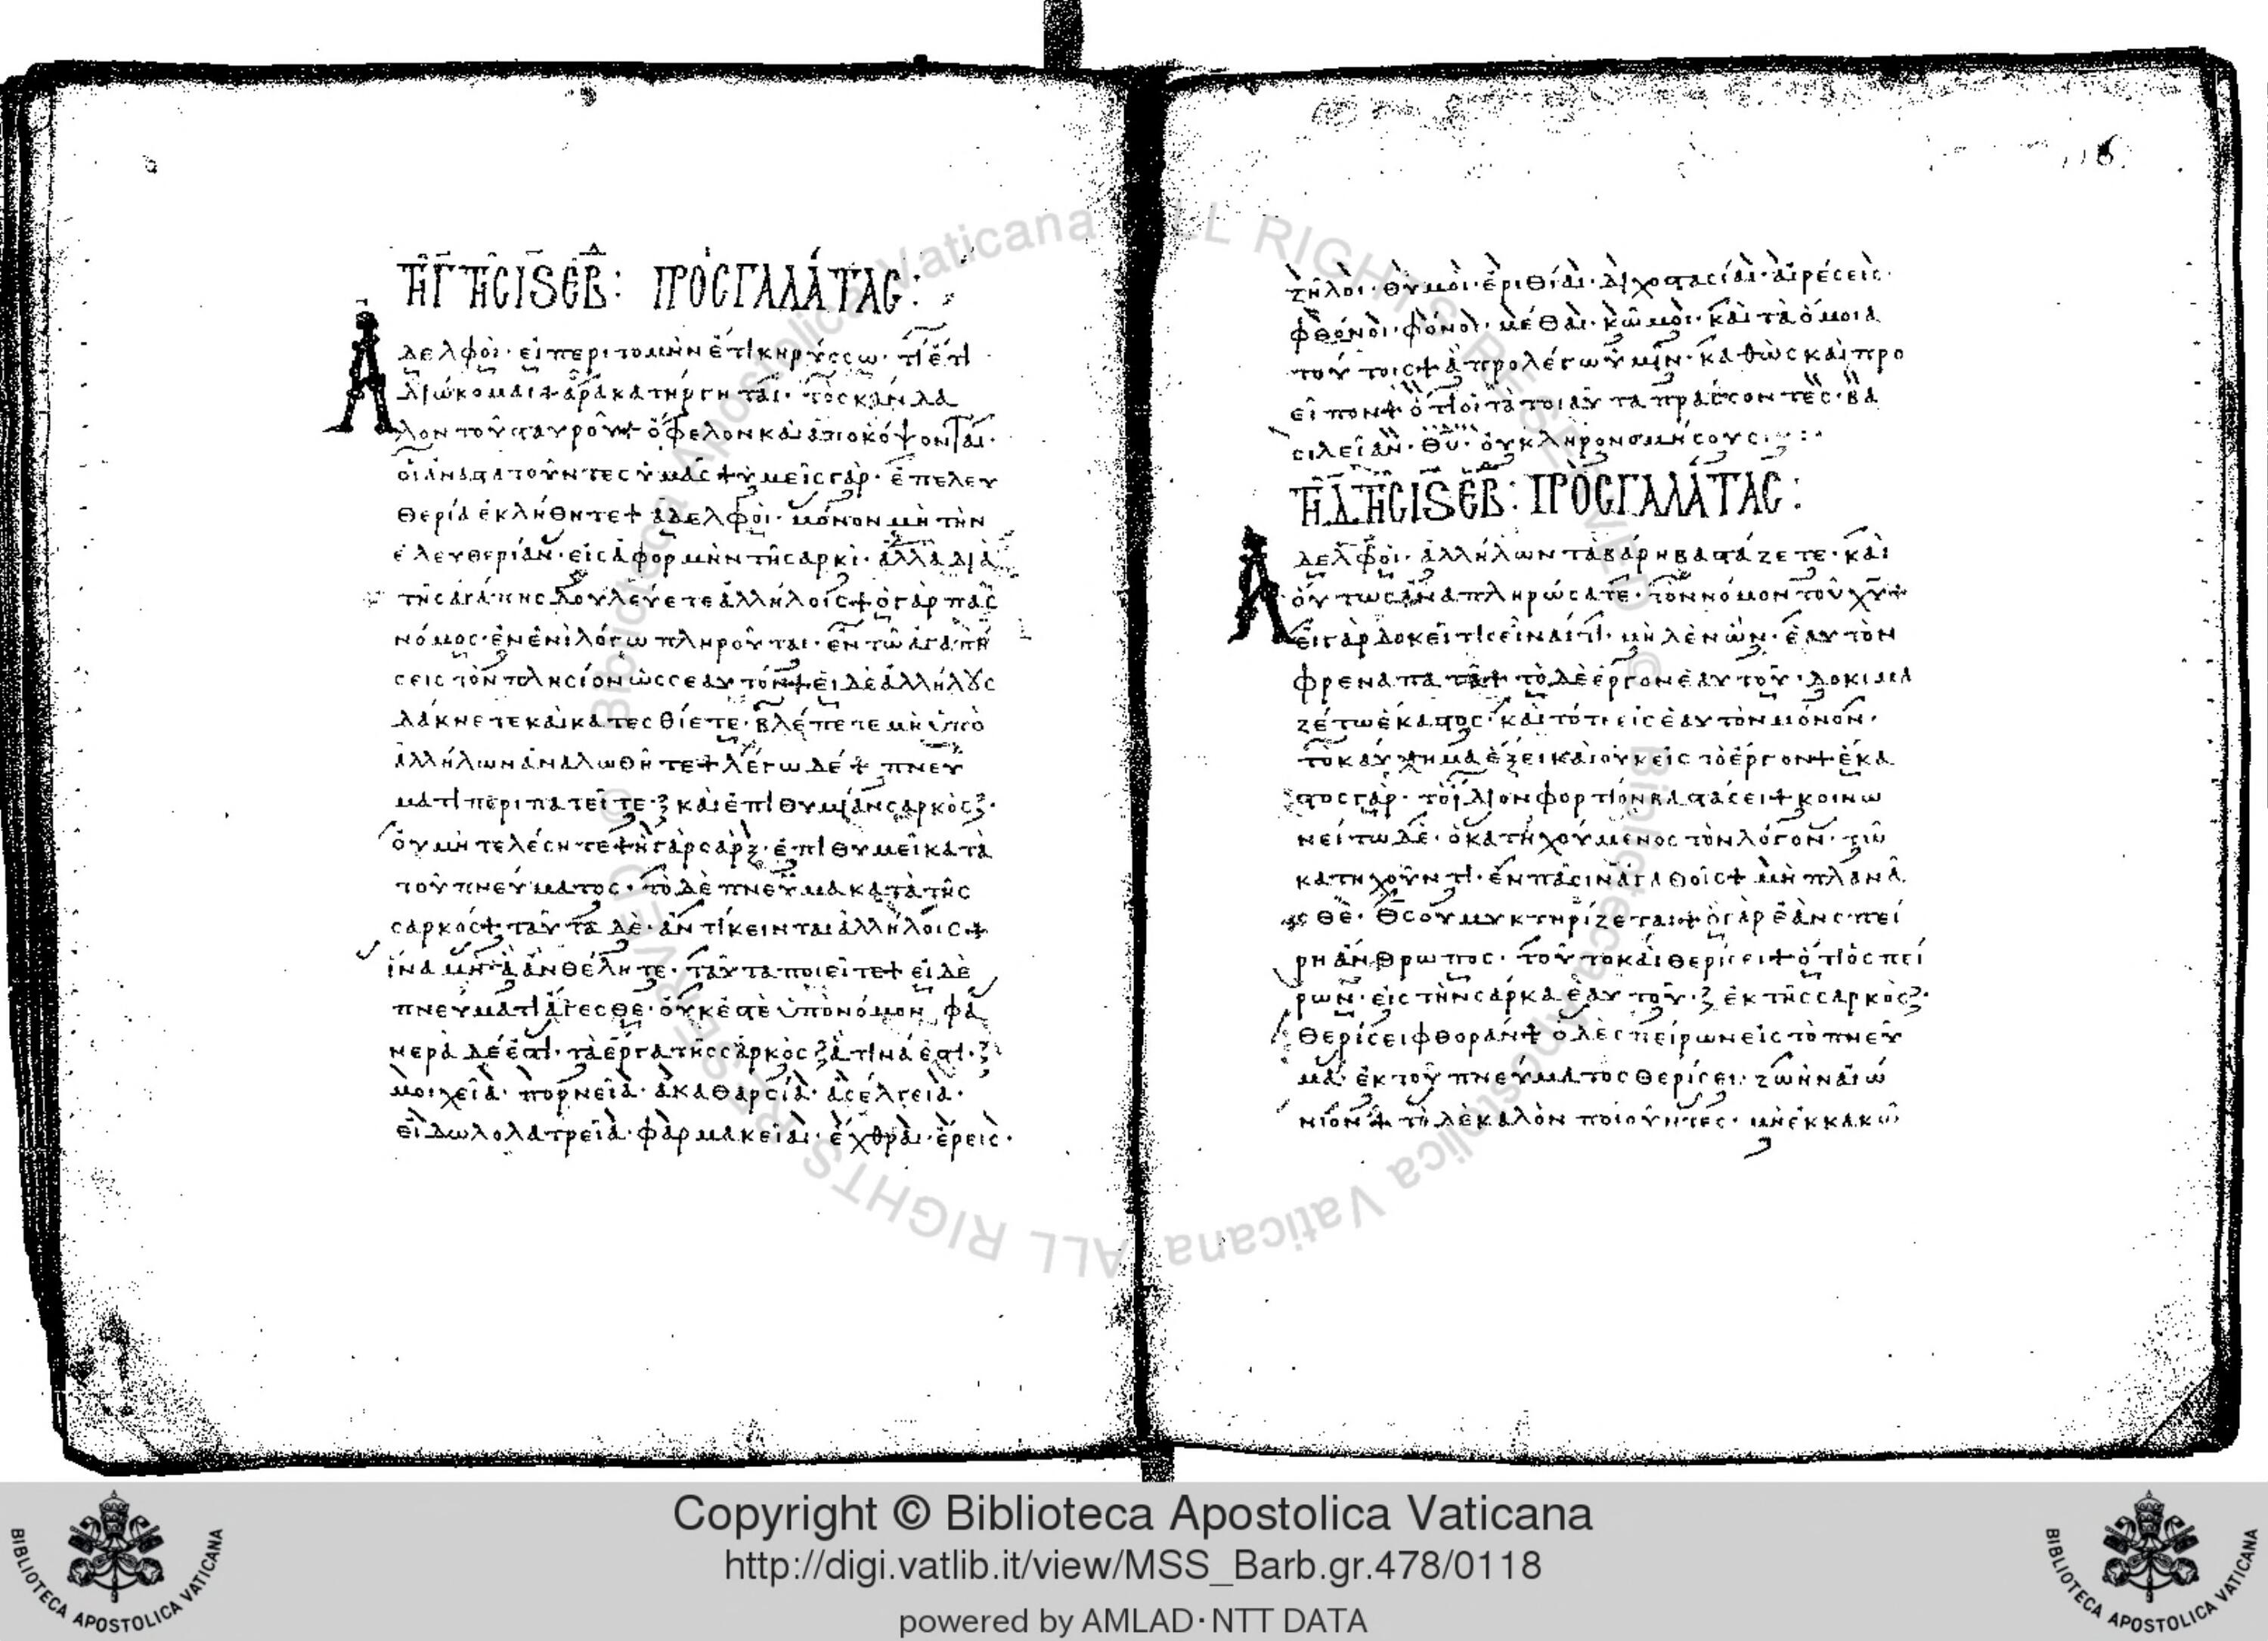 τῇ γ τῆς ις εβδ: πρὸς γαλάτας:
Ἀδελφοὶ· εἰ περιτομὴν ἔτι κηρύσσω· τί ἔτι
διώκομαι + ἄρα κατήργηται· τὸ σκάνδα
λον τοῦ σταυροῦ + ὄφελον καὶ ἀποκόψονται·
οἱ ἀναστατοῦντες ὑμᾶς + ὑμεῖς γὰρ· ἐπ ελευ
θερία ἐκλήθητε + ἀδελφοὶ· μόνον μὴ τὴν
ἐλευθερίαν· εἰς ἀφορμὴν τῆ σαρκὶ· ἀλλὰ διὰ
τῆς ἀγάπης δουλεύετε ἀλλήλοις + ὁ γὰρ πᾶς
νόμος· ἐν ἑνὶ λόγω πληροῦται· ἐν τῶ ἀγαπή
σεις τὸν πλησίον ὡς σεαυτόν + εἰ δὲ ἀλλήλους
δάκνετε καὶ κατεσθίετε· βλέπετε μὴ ὑπὸ
ἀλλήλων ἀναλωθῆτε + λέγω δέ + πνεύ
ματι περιπατεῖτε· καὶ ἐπιθυμίαν σαρκὸς·
οὐ μὴ τελέσητε + ἡ γὰρ σὰρξ· ἐπιθυμεῖ κατὰ
τοῦ πνεύματος· τὸ δὲ πνεῦμα κατὰ τῆς
σαρκός + ταῦτα δὲ· ἀντίκεινται ἀλλήλοις +
ἵνα μὴ ἃ ἂν θέλητε· ταῦτα ποιεῖτε + εἰ δὲ
πνεύματι ἄγεσθε· οὐκ ἐστὲ ὑπὸ νόμον φα
νερὰ δέ ἐστι· τὰ ἔργα τῆς σαρκὸς ἅτινά ἐστι·
μοιχεία· πορνεία· ἀκαθαρσία· ἀσέλγεια·
εἰδωλολατρεία· φαρμακείαι· ἔχθραι· ἔρεις·
ζῆλοι· θυμοὶ· ἐριθίαι· διχοστασίαι· αἱρέσεις·
φθόνοι· φόνοι· μέθαι· κῶμοι· καὶ τὰ ὅμοια
τούτοις + ἃ προλέγω ὑμῖν· καθὼς καὶ προ
εῖπον + ὅτι οἱ τὰ τοιαῦτα πράσσοντες· βα
σιλείαν· θυ· οὐ κληρονομήσουσι:
τῇ δ τῆς ις εβδ: πρὸς γαλάτας:
Ἀδελφοὶ· ἀλλήλων τὰ βάρη βαστάζετε· καὶ
οὕτως ἀναπληρώσατε· τὸν νόμον τοῦ χυ +
εἰ γὰρ δοκεῖ τίς εἶναί τι· μηδὲν ὢν· ἑαυτὸν
φρεναπατᾶ + τὸ δὲ ἔργον ἑαυτοῦ· δοκιμα
ζέτω ἕκαστος· καὶ τότε εἰς ἑαυτὸν μόνον·
τὸ καύχημα ἕξει καὶ οὐκ εἰς τὸ ἔργον + ἕκα
στος γὰρ· τὸ ἴδιον φορτίον βαστάσει + κοινω
νείτω δὲ· ὁ κατηχούμενος τὸν λόγον· τῶ
κατηχοῦντι· ἐν πᾶσιν ἀγαθοῖς + μὴ πλανᾶ
σθε· θς οὐ μυκτηρίζεται + ὃ γὰρ ἐὰν σπεί
ρη ἄνθρωπος· τοῦτο καὶ θερίσει + ὅτι ὁ σπεί
ρων· εἰς τὴν σάρκα ἑαυτοῦ· ἐκ τῆς σαρκὸς·
θερίσει φθοράν + ὁ δὲ σπείρων εἰς τὸ πνεῦ
μα· ἐκ τοῦ πνεύματος θερίσει· ζωὴν αἰώ
νιον + τὸ δὲ καλὸν ποιοῦντες· μὴ ἐκκακῶ
Copyright © Biblioteca Apostolica Vaticana
http://digi.vatlib.it/view/MSS_Barb.gr.478/0118
powered by AMLAD·NTT DATA
BIBLIOTECA APOSTOLICA VATICANA
BIBLIOTECA APOSTOLICA VATICANA